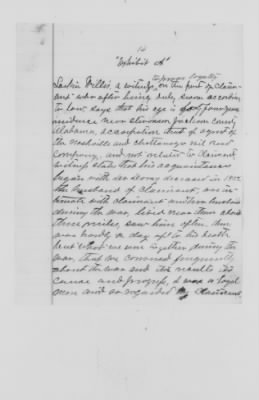 14
"Exhibit A"
to prove loyalty
Larkin Willis, a witness, on the part of Claim-
ant who after being duly sworn according
to law, says that his age is forty four years
residence near Stevenson Jackson County
Alabama, occupation that of agent of
the Nashville and Chattanooga rail road
Company, and not related to claimant,
witness states that his acquaintance
began with deceased in 1852
the husband of Claimant, was in-
timate with claimant and her husband
during the war, lived near them about
three miles, saw him often, there
was hardly a day up to his death
but what we were together during the
war, that we conversed frequently
about the war and its results its
cause and progress, I was a loyal
man and so regarded by Claimant